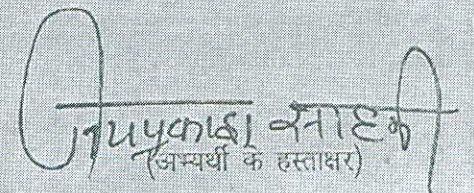 जयप्रकाश साहू
(अभ्यर्थी के हस्ताक्षर)